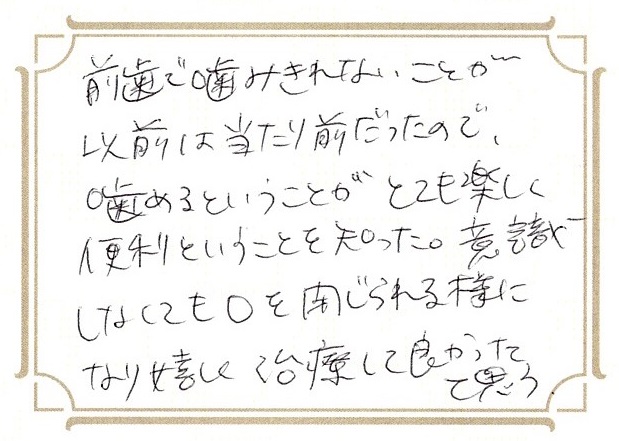 前歯で噛みきれないことが
以前は当たり前だったので、
噛めるということがとても楽しく
便利ということを知った。意識
しなくても口を閉じられる様に
なり嬉しく治療して良かった
て思う